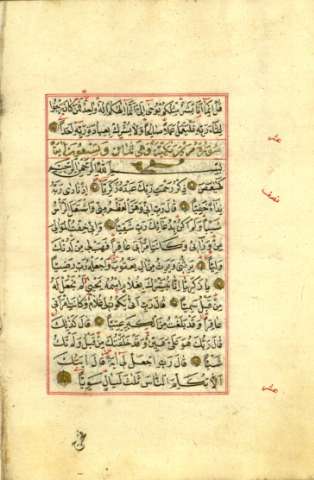 قل انما انا بشر مثلكم يوحى الى انما الهكم اله واحد فمن كان يرجوا
لقاء ربه فليعمل عملا صالحا ولا يشرك بعبادة ربه احدا
سورة مريم مكية وهى ثمان وتسعون اية
بسم الله الرحمن الرحيم
كهيعص ذكر رحمت ربك عبده زكريا اذ نادى ربه
نداء خفيا قال رب انى وهن العظم منى واشتعل الراس
شيبا ولم اكن بدعائك رب شقيا وانى خفت الموالى
من ورائى وكانت امراتى عاقرا فهب لى من لدنك
وليا يرثنى ويرث من ال يعقوب واجعله رب رضيا
يا زكريا انا نبشرك بغلام اسمه يحيى لم نجعل له
من قبل سميا قال رب انى يكون لى غلام وكانت امراتى
عاقرا وقد بلغت من الكبر عتيا قال كذلك
قال ربك هو على هين وقد خلقتك من قبل ولم تك
شيئا قال رب اجعل لى اية قال ايتك
الا تكلم الناس ثلث ليال سويا
عشر
نصف
عشر